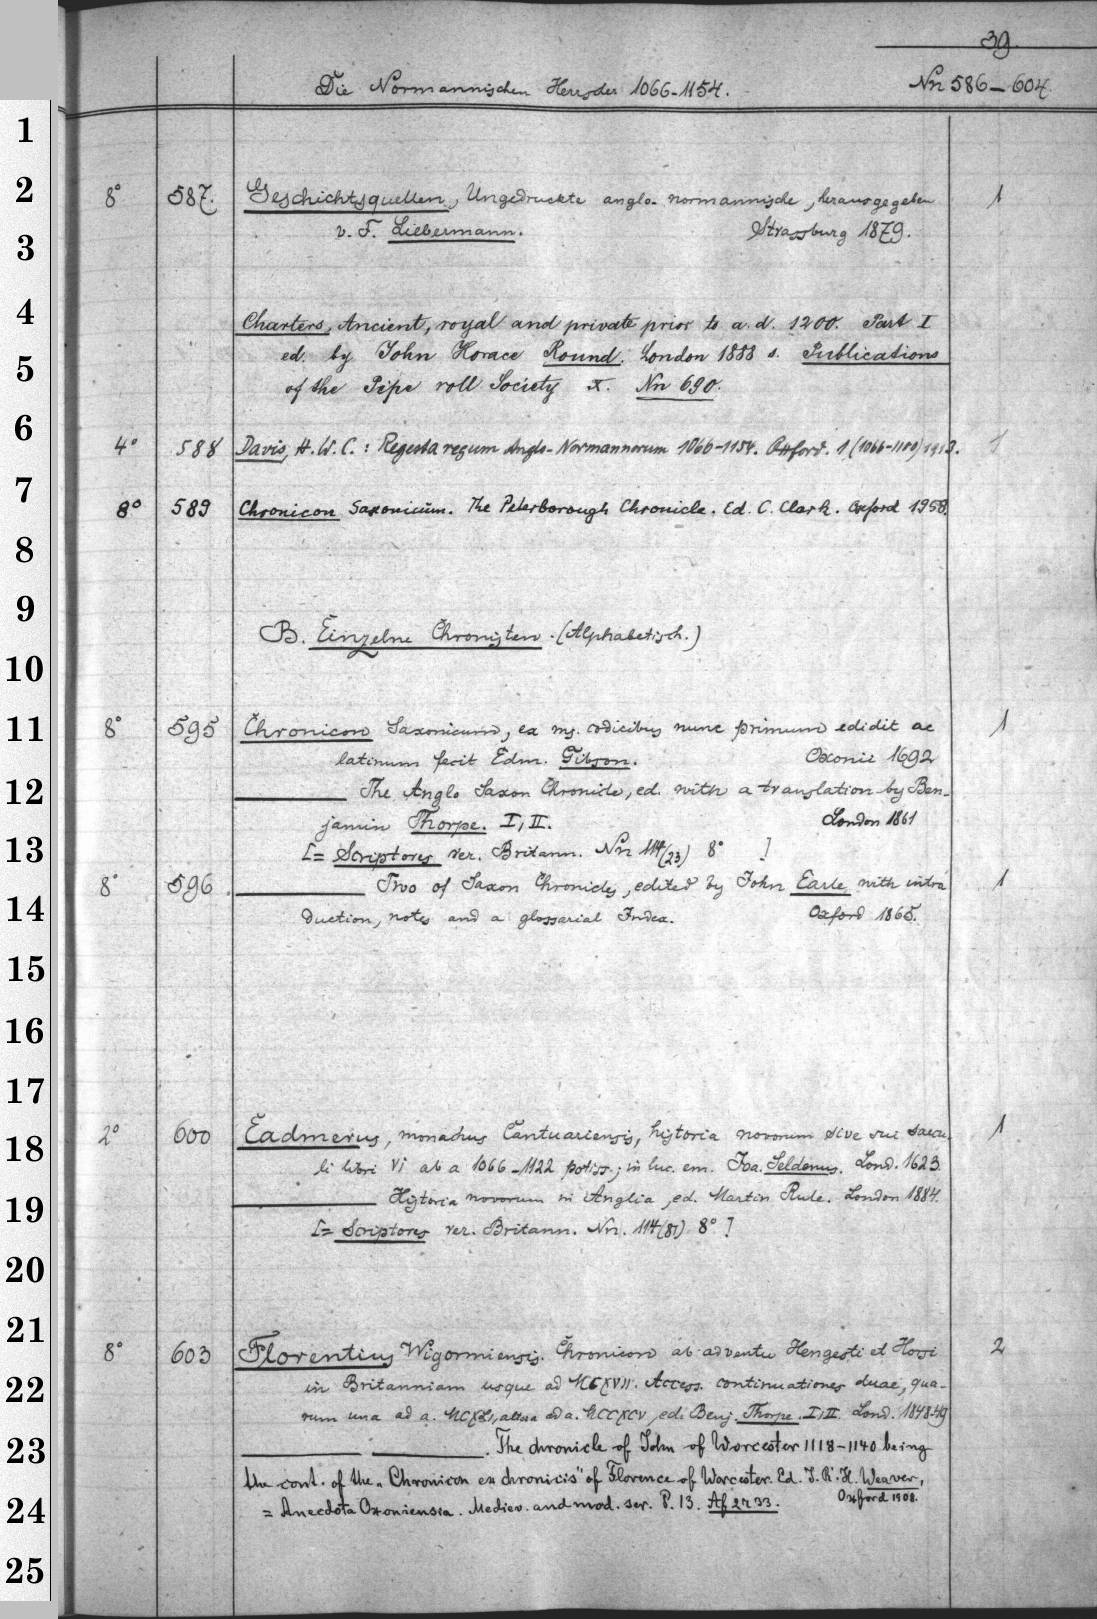 39.
Die Normannischen Herrscher 1066-1154. Nn 586-604.
1
2
3
4
5
6
7
8
9
10
11
12
13
14
15
16
17
18
19
20
21
22
23
24
25
8° 587. Geschichtsquellen, Ungedruckte anglo-normannische, herausgegeben 1
v. F. Liebermann. Strassburg 1879.
Charters, Ancient, royal and private prior to a. d. 1200. Part I
ed. by John Horace Round. London 1888 s. Publications
of the Pipe roll Society X. Nn 690.
4° 588 Davis, H. W. C.: Regesta regum Anglo-Normannorum 1066-1154. Oxford. 1 (1066-1100) 1913. 1
8° 589 Chronicon Saxonicum. The Peterborough Chronicle. Ed. C. Clark. Oxford 1958.
B. Einzelne Chronisten. (Alphabetisch.)
8° 595 Chronicon Saxonicum, ex ms. codicibus nunc primum edidit ac 1
latinum fecit Edm. Gibson. Oxonii 1692
The Anglo Saxon Chronicle, ed. with a translation by Ben-
jamin Thorpe. I, II. London 1861
[= Scriptores rer. Britann. Nn 114 (23) 8° ]
8° 596. Two of Saxon Chronicles, edited by John Earle with intro 1
duction, notes and a glossarial Index. Oxford 1865.
2° 600 Eadmerus, monachus Cantuariensis, historia novorum sive sui saecu- 1
li libri VI ab a 1066-1122 potiss.; in luc. em. Joa. Seldenus. Lond. 1623.
Historia novorum in Anglia, ed. Martin Rule. London 1884.
[= Scriptores rer. Britann. Nn. 114 (81) 8° ]
8° 603 Florentius Wigorniensis. Chronicon ab adventu Hengesti et Horsi 2
in Britanniam usque ad MCXVII. Access. continuationes duae, qua-
rum una ad a. MCXLI, altera ad a. MCCXCV, ed. Benj. Thorpe. I, II. Lond. 1848-49
. The chronicle of John of Worcester 1118-1140 being
the cont. of the „Chronicon ex chronicis" of Florence of Worcester. Ed. J. R. H. Weaver,
= Anecdota Oxoniensia. Mediev. and mod. ser. P. 13. Af 27 33. Oxford 1908.